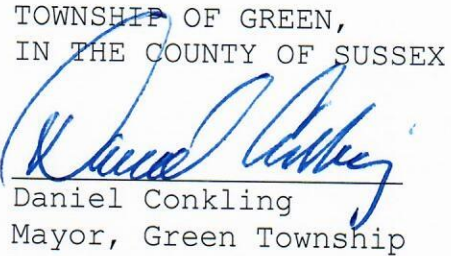 TOWNSHIP OF GREEN,
IN THE COUNTY OF SUSSEX
Daniel Conkling
Daniel Conkling
Mayor, Green Township